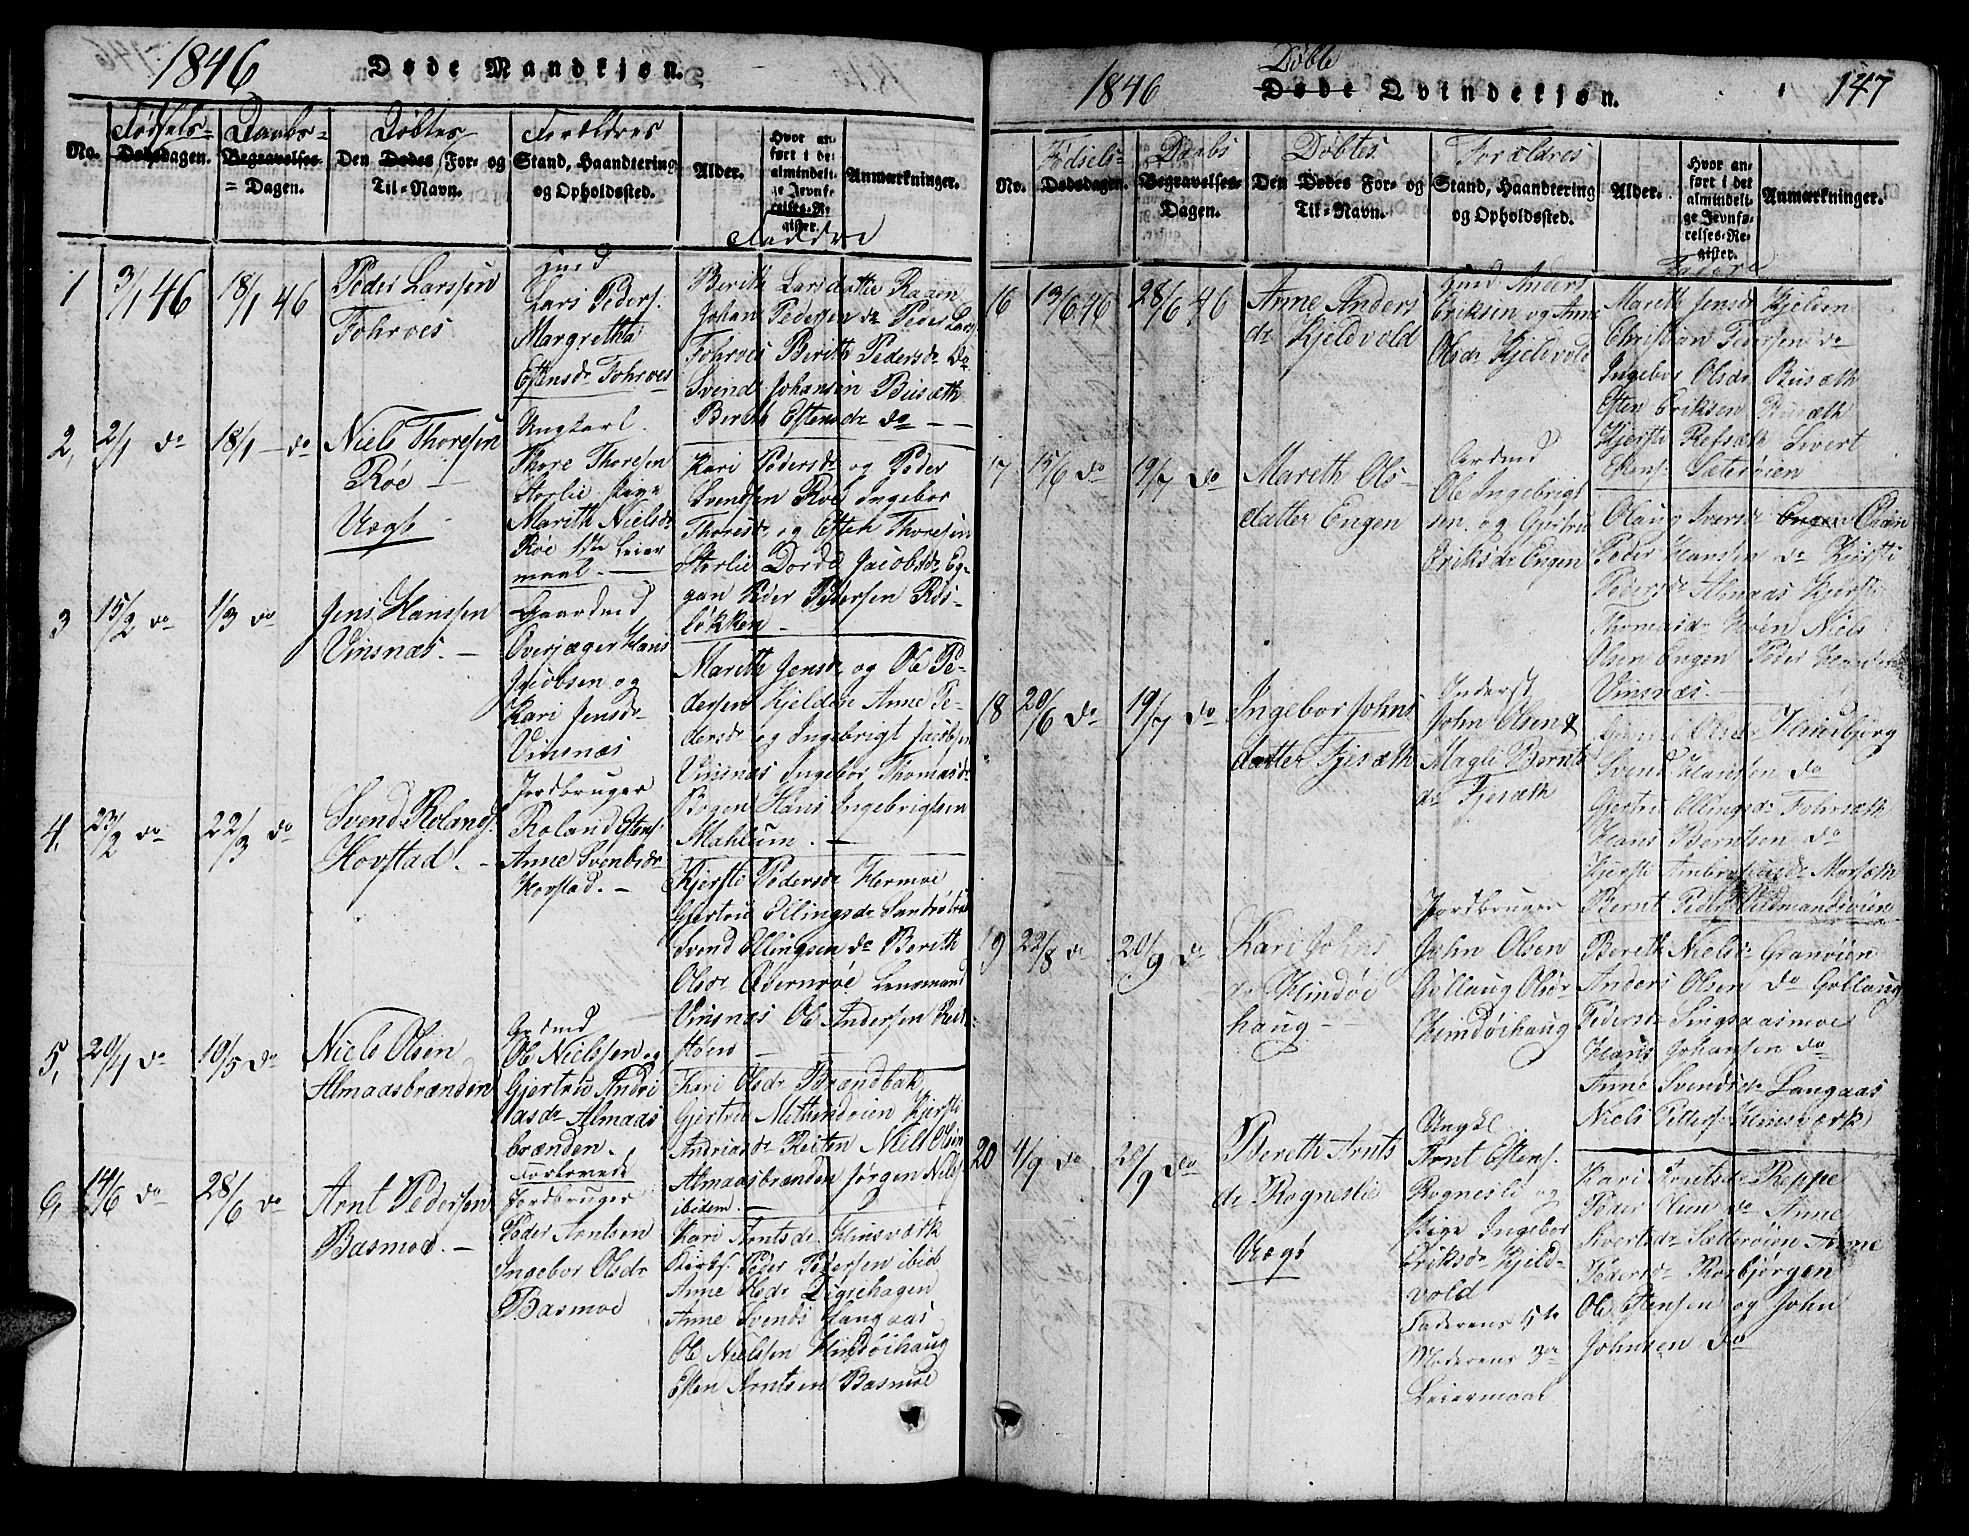 1846
Døde Mandkjøn.
No.
Fødsels-
Dødsdagen.
Daabs-
Begravelses-
= Dagen.
Døbtes
Den Dødes For- og
Til-Navn.
Forældres
Stand, Haandtering
og Opholdssted.
Alder.
Hvor an-
ført i det
almindeli-
ge Jevnfø-
relses-Re-
gister.
Anmærkninger.
Faddre
1
3/1 46
18/1 46
Peder Larssen
Fohrves
Lars Peders.
Margretha
Estensdr Fohrves
Berith Larsdatter Ragen
Johan Pedersen do Peder Lars
Fohrves Berith Pedersdr do
Svend Johansen Busæth
Berith Estensdr do
2,
2/1 do
18/1 do
Niels Thoresen
Røe
Uægte
Ungkarl
Thore Thoresen
Storlie Pige
Marith Nielsdr
Røe 1ste Leier
maal.
Kari Pedersdr og Peder
Svendsen Roe Ingebor
Thoresdr og Esten Thoresen
Storlie Dorde Jacobsdr Eg-
gen Peder Pedersen Røs-
løkken
3
15/2 do
1/3 do
Jens Hanssen
Vinsnæs.
Gaardmd
Overjæger Hans
Jacobsen og
Kari Jensdr
Vinsnæs
Marith Jensdr og Ole Pe-
dersen Kjelden Anne Pe-
dersdr og Ingebrigt Jacobsen
Vinsnæs Ingebor Thomasdr
Bogen Hans Ingebrigtsen
Mahlum.
4,
23/2 do
22/3 do
Svend Rolands.
Hovstad.
Jordbruger
Roland Estens.
Anne Svendsdr
Hovstad.
Kjersti Pedersdr Hermoe
Gjertru Ellingsdr Sandrø
Svend Ellingsen do Berith
Olsdr Abernrøe Lensmand
Vinsnæs Ole Andersen
støen
5,
20/4 do
10/5 do
Niels Olsen
Almaasbrænden
Grdmd
Ole Nielssen og
Gjertru Andri
asdr Almaas
brænden.
Kari Olsdr Brændbak
Gjertru Kjersti
Andriasdr Reiten Niels Olsen
Almaasbrænden Jørgen Niels.
ibidem.
6,
14/6 do
28/6 do
Arnt Pedersen
Basmoe.
Forlovede
Jordbruger
Peder Arntsen
Ingebor Olsdr
Basmoe
Kari Arntsdr Hinsværk
Kirks. Peder Pedersen ibid
Anne Olsdr Digrehagen
Anne Svends Langaas
Ole Nielssen Hindøihaug
Esten Arntsen Basmoe
1846
Døbte
Døde Qvindekjøn.
147
No.
Fødsels-
Dødsdagen.
Daabs
Begravelses-
Dagen.
Døbtes
Den Dødes For- og
Til-Navn.
Forældres
Stand, Haandtering
og Opholdssted.
Alder.
Hvor an-
ført i det
almindeli-
ge Jevnfø-
relses-Re-
gister.
Anmærkninger.
Faddre
16
13/6 46
28/6 46
Anne Anders
dr Kjeldvold
Anders
Eriksen og Anne
Olsdr Kjeldvold
Mareth Jensdr Kjelden
Christian Pedersen do
Ingebor Olsdr Busæth
Esten Eriksen Busæth
Kjersti Refsæth Sivert
Hans. Sæterøien
17
15/6 do
19/7 do
Mareth Ols-
datter Engen
Grdmd
Ole Ingebrigt
sen og Gjertru
Eriksdr Engen
Olaug Iversdr Engen
Peder Hansen do Kjersti
Pedersdr Almaas Kjersti
Thomasdr Høen Niels
Olsen Engen Peder
Vinsnæs.
18
20/6 do
19/7 do
Ingebor Johns
datter Fjesæth
Inderst
John Olsen &
Magli Bernts
dr Fjesæth
Olsdr Haukbjerg
Svend Hansen do
Gjertru Ellingsdr Fohrsæth
Hans Berntsen do
Kjersti Morsæth
Bernt Peders.
19
22/8 do
20/9 do
Kari Johns
dr Hindøi
haug
Jordbruger
John Olsen
Gollaug Olsdr
Hindøihaug
Bereth Nielsdr Granøien
Anders Olsen do Gollaug
Pedersdr Singsaasmoe
Hans Johansen do
Anne Svendsdr Langaas
Niels Peders. Hinsværk
20
4/9 do
20/9 do
Bereth Arnts
dr Rogneslie
Uægte
Ungkl
Arnt Estens.
Rognesli og
Pige Ingebor
Eriksdr Kjeld-
vold
Faderens 5te
Moderens 3die
Leiermaal
Kari Arntsdr Reppe
Peder do Anne
Sivertsdr Sætterøien Anne
Pedersdr Rosbjørgen
Ole Estensen og John
Johnsen do